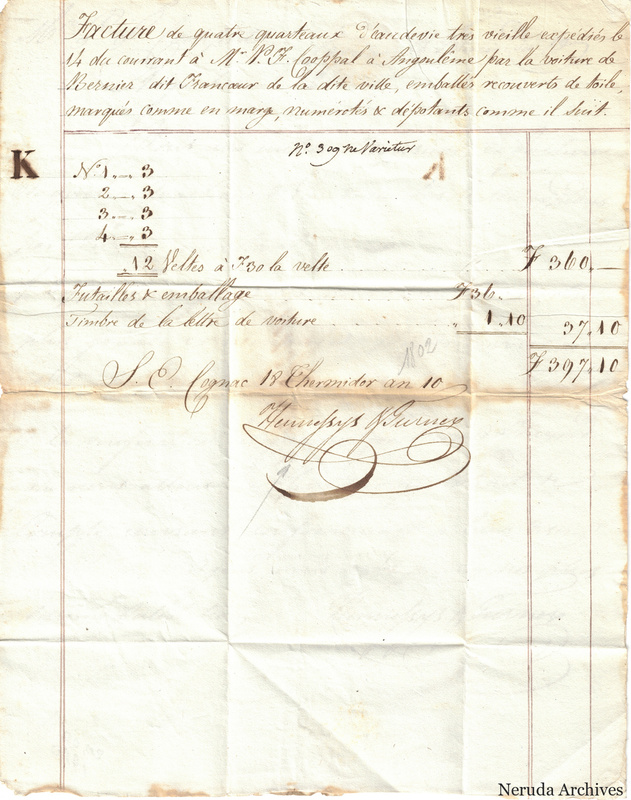 Facture de quatre quarteaux d'eaudevie très vieille expediés le
14 du courrant à Mr. P. F. Cooppal à Angoulème par la voiture de
Bernier dit Francœur de la dite ville, emballés recouverts de toile,
marqués comme en marge, numérotés & dépotants comme il suit.
No. 309 ne Varietur
K
No. 1 „ — 3
2 — „ 3
3 — „ 3
4 — „ 3
„ 12 Veltes à F 30 la velte F 360. —
Futailles & emballage F 36 „
Timbre de la lettre de voiture „ 1 „ 10 37 „ 10
F 397 „ 10
1802
S. E. Cognac 18 Thermidor an 10
Hennessys & Turner
Neruda Archives